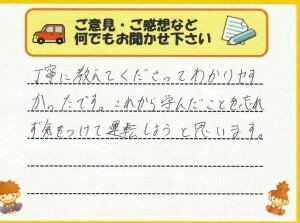 ご意見・ご感想など
何でもお聞かせ下さい
丁寧に教えてくださってわかりやす
かったです。これから学んだことを忘れ
ず気をつけて運転しようと思います。